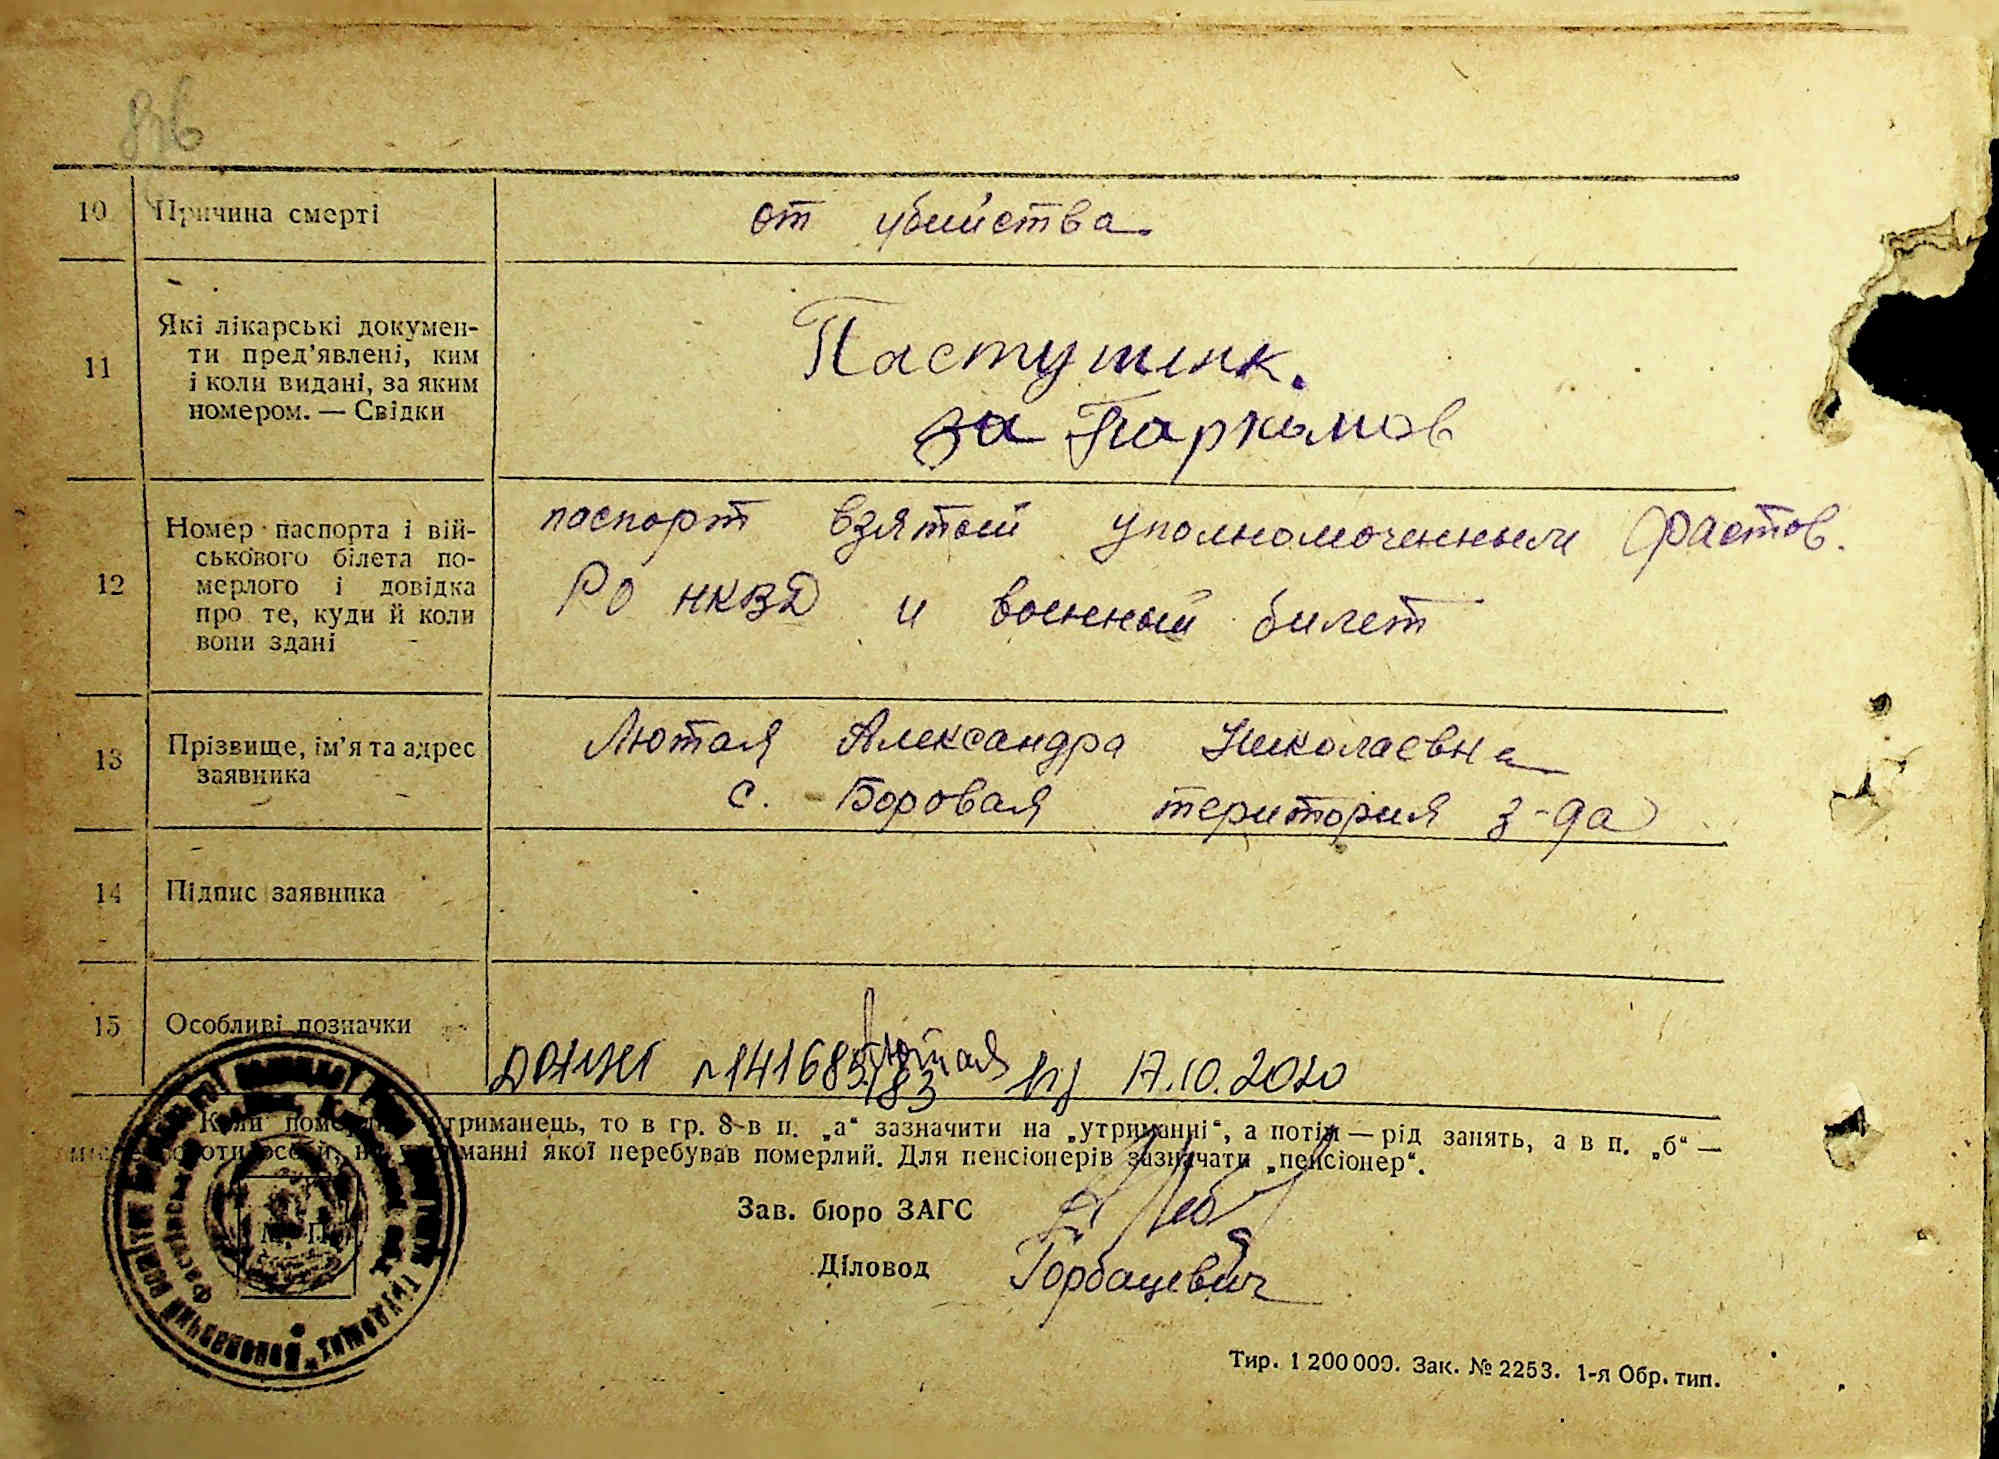 10 Причина смерті
от убийства.
11 Які лікарські докумен-
ти пред’явлені, ким
і коли видані, за яким
номером. — Свідки
Пастушик.
за Пархомов
12 Номер паспорта і вій-
ськового білета по-
мерлого і довідка
про те, куди й коли
вони здані
паспорт взятый уполномоченным Фастов.
РО НКВД и военный билет
13 Прізвище, ім’я та адрес
заявника
Лютая Александра Николаевна
с. Боровая територия з-да
14 Підпис заявника
15 Особливі позначки
Лютая
17.10.2020
Коли померлий утриманець, то в гр. 8-в п. „а“ зазначити на „утриманні“, а потім — рід занять, а в п. „б“ —
місце роботи особи, на утриманні якої перебував померлий. Для пенсіонерів зазначати „пенсіонер“.
Зав. бюро ЗАГС
Діловод Горбацевич
М. П.
Тир. 1 200 000. Зак. № 2253. 1-я Обр. тип.